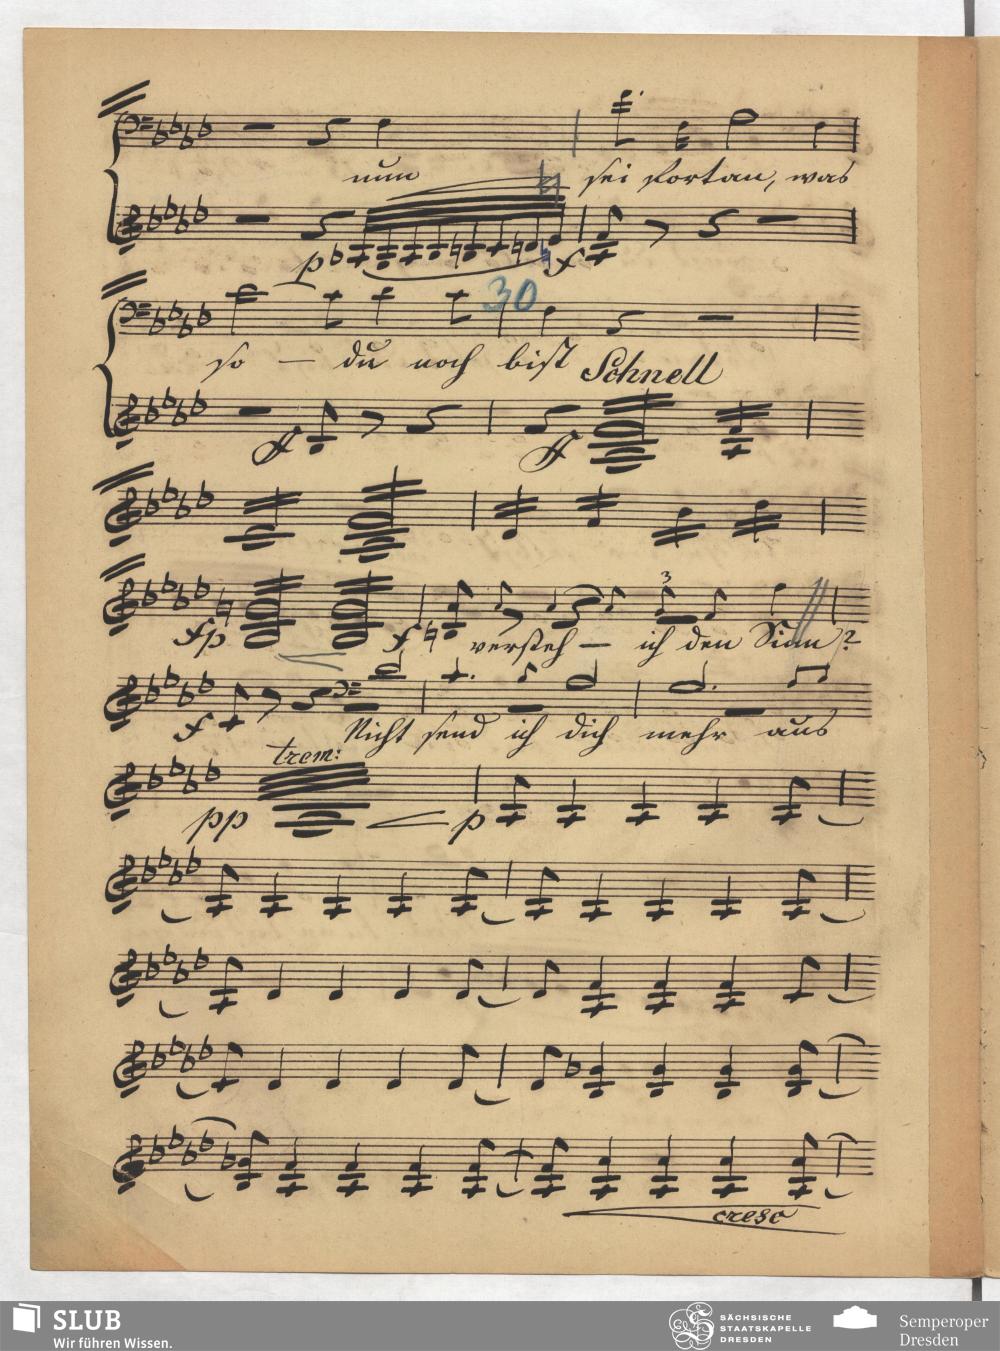 nun sei fortan, was
p f
30
so — du noch bist Schnell
ff ff
3
fp f versteh — ich den Sinn?
f Nicht send ich dich mehr aus
trem:
pp p
cresc
SLUB
Wir führen Wissen.
SÄCHSISCHE
STAATSKAPELLE
DRESDEN
Semperoper
Dresden